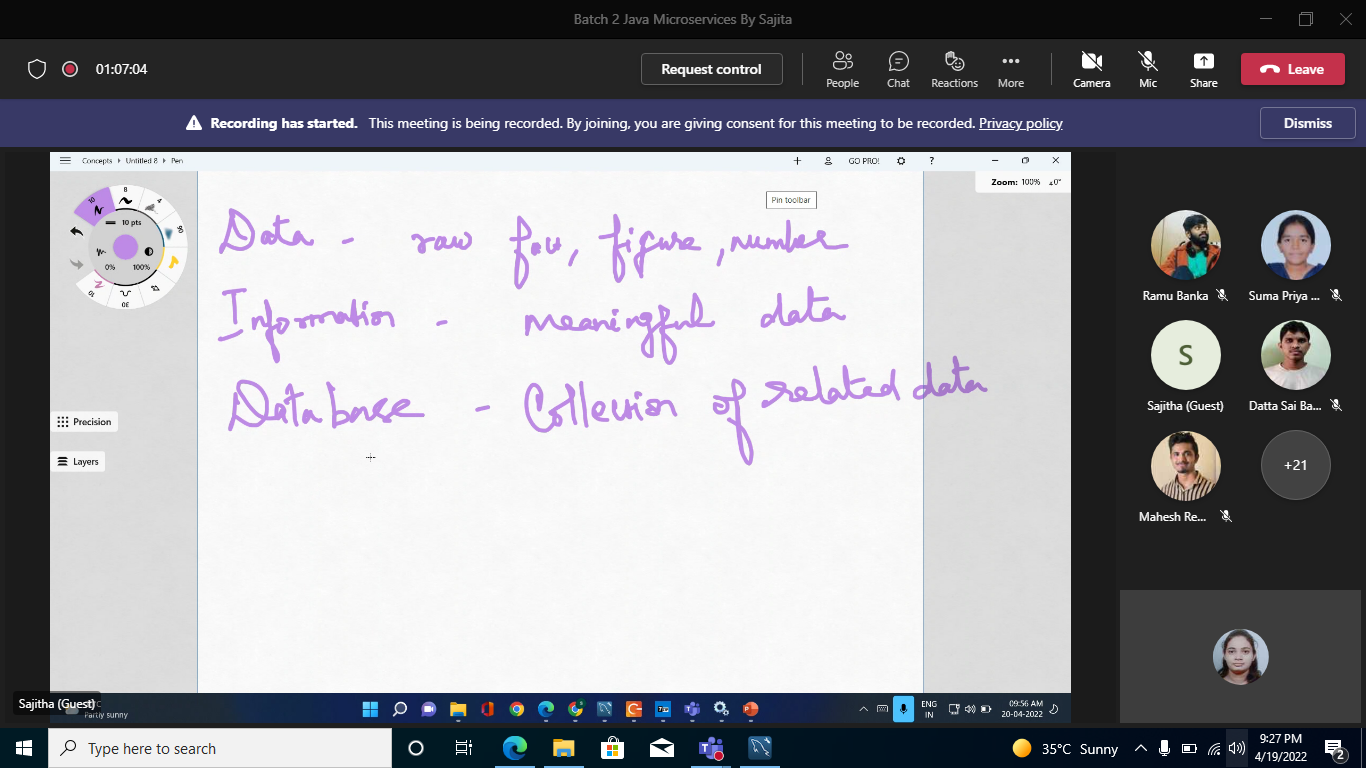 Batch 2 Java Microservices By Sajita
01:07:04
Request control
People
Chat
Reactions
More
Camera
Mic
Share
Leave
Recording has started. This meeting is being recorded. By joining, you are giving consent for this meeting to be recorded. Privacy policy
Dismiss
Concepts Untitled 8 Pen
GO PRO!
?
Zoom: 100% 0°
Pin toolbar
10 pts
0% 100%
Data - raw , figure, number
Information - meaningful data
Database - Collection of related data
Precision
Layers
Ramu Banka
Suma Priya ...
S
Sajitha (Guest)
Datta Sai Ba...
Mahesh Re...
+21
Sajitha (Guest)
Partly sunny
ENG
IN
09:56 AM
20-04-2022
Type here to search
35°C Sunny
9:27 PM
4/19/2022
2